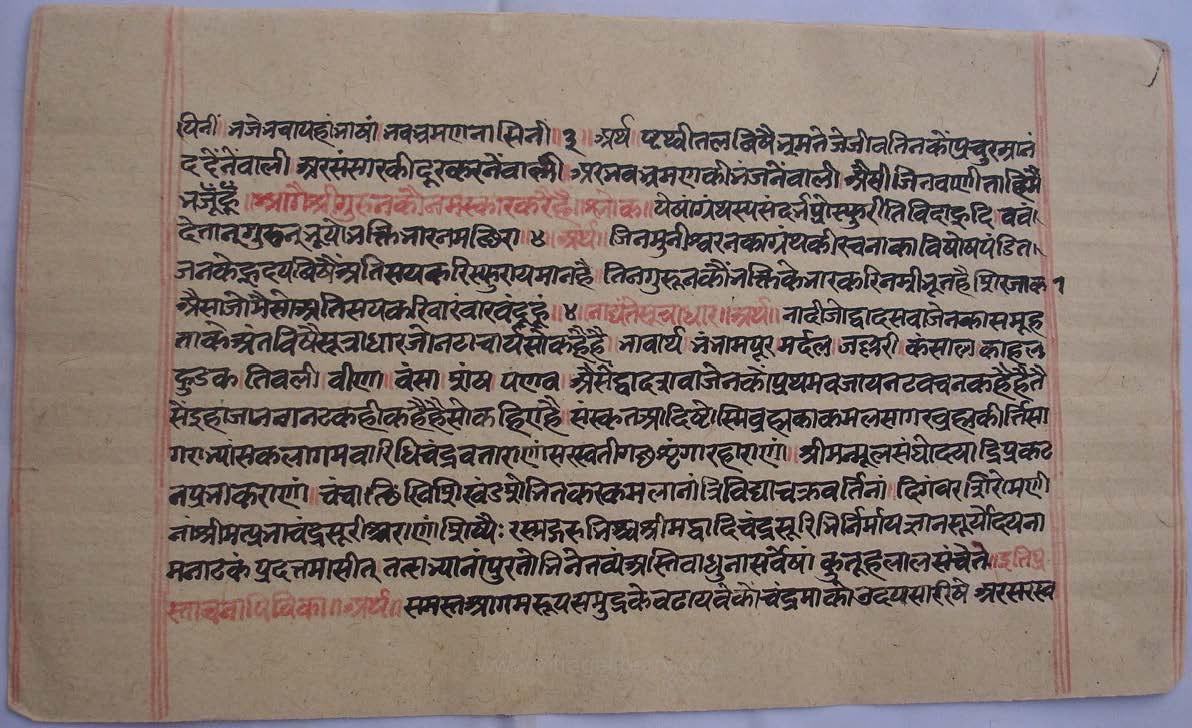 यिनीं भजेभवापहां भाषां भवभ्रमणनासिनीं॥३॥ अर्थ पृथ्वीतलविषैभ्रमतेजेजीवतिनकेंप्रचुरआनं
ददेंनेंवाली अरसंसारकीदूरकरनेंवाली अरभवभ्रमणकीभंजनेंवाली असीजिनवाणीताहिमैं
भजूंहूं॥आगैश्रीगुरुनकौनमस्कारकरैहै॥श्लोक॥येषांग्रंथस्यसंदर्भप्रोस्फुरीतिविदाहृदि ववं
देतान्गुरुन्भूयोभक्तिभारनमच्छिरा॥४॥अर्थ॥जिनमुनीश्वरनकाग्रंथकीरचनाकाविशेषपंडित
जनकेहृदयविषैंअतिसयकरिस्फुरायमानहै तिनगुरूनकौंभक्तिकेभारकरिनमीभूतहैशिरजाक १
असाजोमैसोअतिसयकरिवारंवारवंदूहूं॥४॥नाद्यंतेसूत्राधार॥अर्थ॥नादीजोद्वादसवाजेनकासमूह
ताकेअंतविषैसूत्राधारजोनटाचार्यसोकहैहै भावार्थ भंभामपूर मर्दल जल्लरी कंसाल काहल
हुडक तिवली वीणा वंसा शंख पणव असेंद्वादशवाजेनकोंप्रथमवजायनटवचनकहैहैतै
सेइहांज्ञानवानटकहीकहैहैसोकहिएहै संस्कृतआदिष्टोस्मिब्रह्मकाकमलसागरब्रह्मकीर्तिसा
गराभ्यांसकलागमवारिधिचंद्रवताराणांसरस्वतीगछशृंगारहाराणां श्रीमन्मूलसंघोदयाद्रिप्रकट
नप्रभाकराणां चंचत्छिखिशिखंडशोभितकरकमलानां त्रिविद्याचक्रवर्तिनां दिगंबरशिरोमणी
नाश्रीमत्प्रभाचंद्रसूरीश्वराणांशिष्यैः रस्मद्गुरुभिश्चश्रीमद्वादिचंद्रसूरिभिर्निर्मायज्ञानसूर्योदयना
मनाटकंप्रदत्तमासीत् तत्सभ्यानांपुरतोभिनेतव्यंअस्तिवाधुनासर्वेषां कुतूहलालसंचेते॥इतिप्र
स्तावना॥अर्थ॥समस्तआगमरूपसमुद्रकेवढायवेकोंचंद्रमाकोउदयसारीषे अरसरस्व